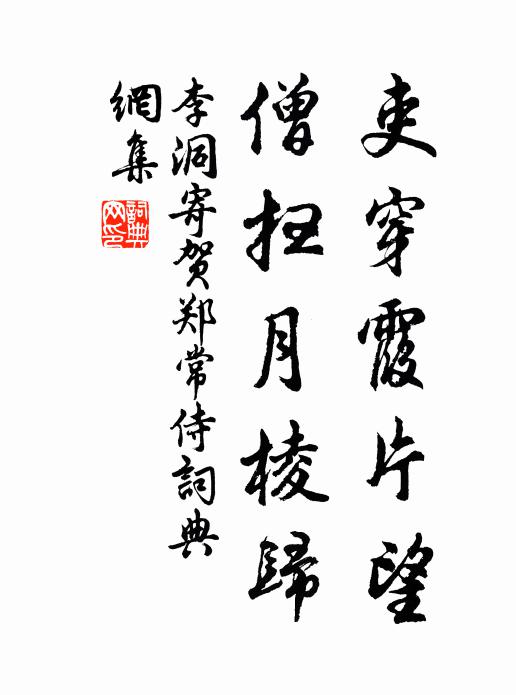 吏穿霞片望
僧扫月棱歸
李洞寄贺郑常侍詞典
網集
詞典网印